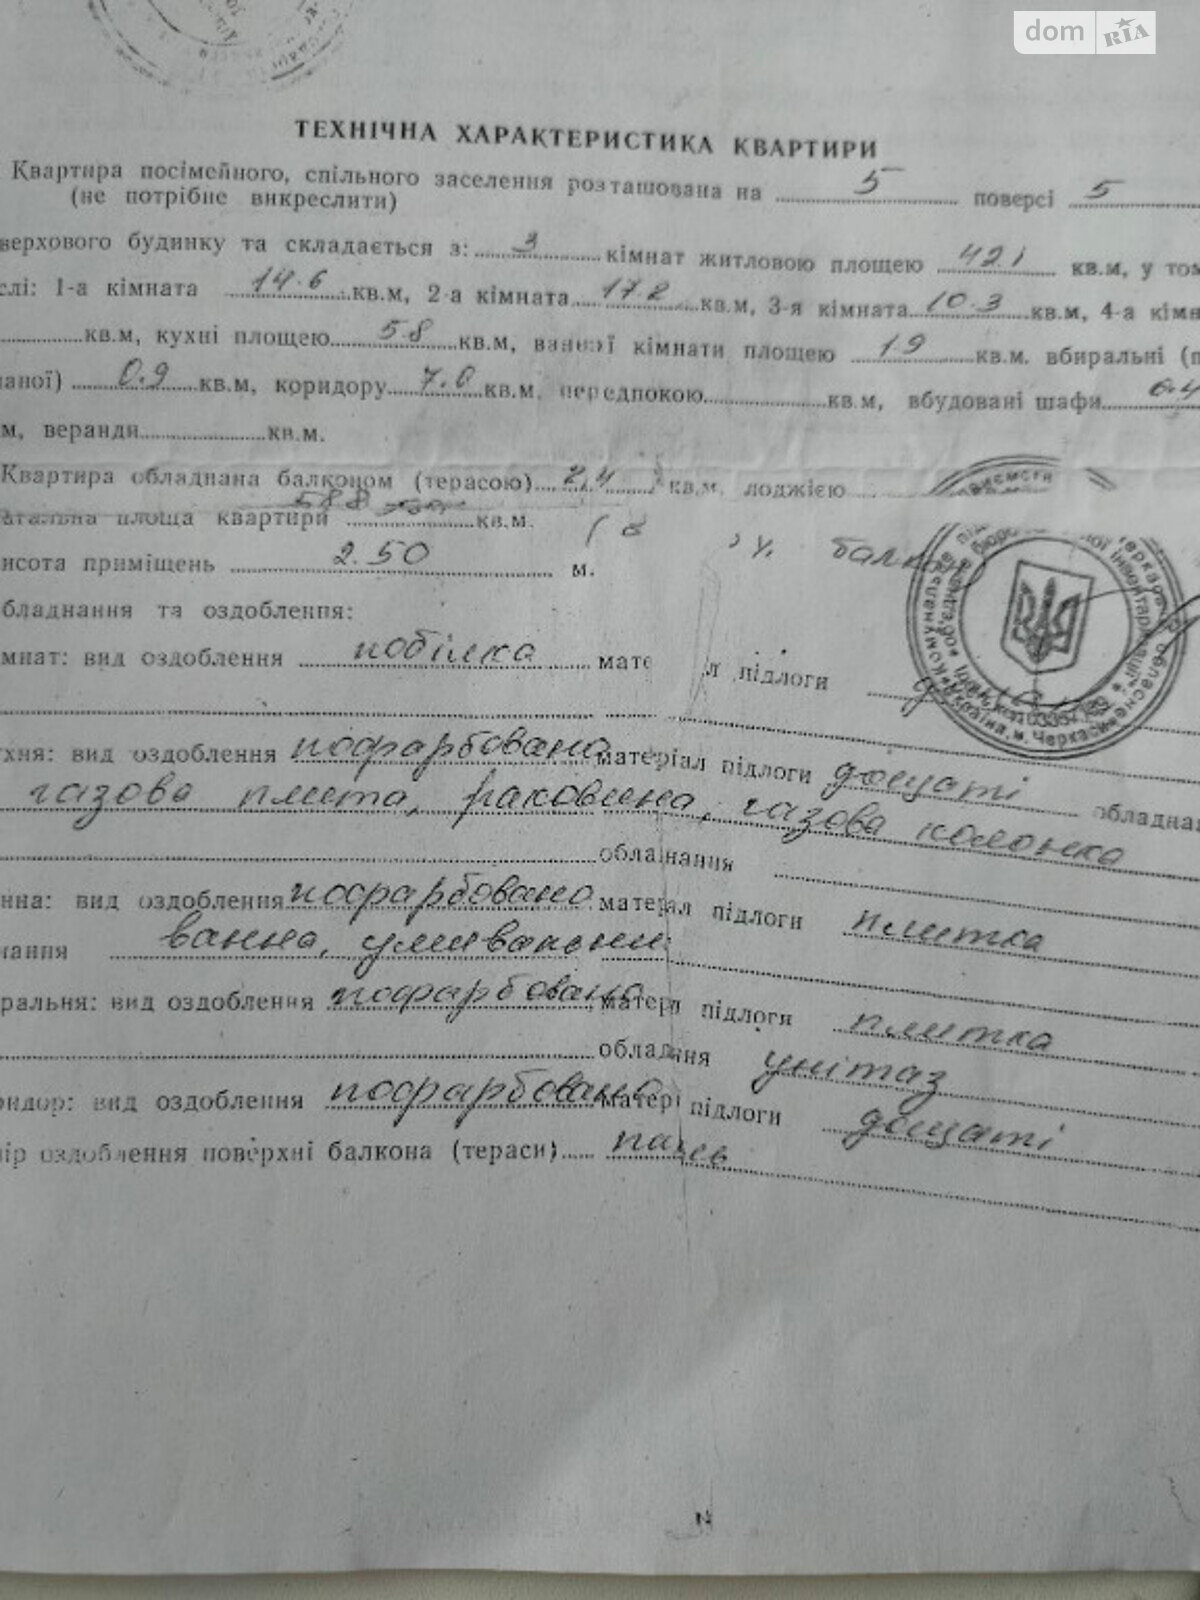 dom RIA
ТЕХНІЧНА ХАРАКТЕРИСТИКА КВАРТИРИ
Квартира посімейного, спільного заселення розташована на 5 поверсі 5
(не потрібне викреслити)
верхового будинку та складається з: 3 кімнат житловою площею 42.1 кв.м, у том
слі: 1-а кімната 14.6 кв.м, 2-а кімната 17.2 кв.м, 3-я кімната 10.3 кв.м, 4-а кімн
кв.м, кухні площею 5.8 кв.м, ванної кімнати площею 1.9 кв.м. вбиральні (п
наної) 0.9 кв.м, коридору 7.0 кв.м, передпокою кв.м, вбудовані шафи 0.4
м, веранди кв.м.
Квартира обладнана балконом (терасою) 2,4 кв.м, лоджією
58.8
агальна площа квартири кв.м.
балкон
исота приміщень 2.50 м.
бладнання та оздоблення:
мнат: вид оздоблення побілка матеріал підлоги
ухня: вид оздоблення пофарбовано матеріал підлоги дощаті обладнан
газова плита, раковина, газова колонка
обладнання
нна: вид оздоблення пофарбовано матеріал підлоги плитка
нання ванна, умивальник
ральня: вид оздоблення пофарбовано матеріал підлоги плитка
обладняння унітаз
ридор: вид оздоблення пофарбовано матеріал підлоги дощаті
ір оздоблення поверхні балкона (тераси)